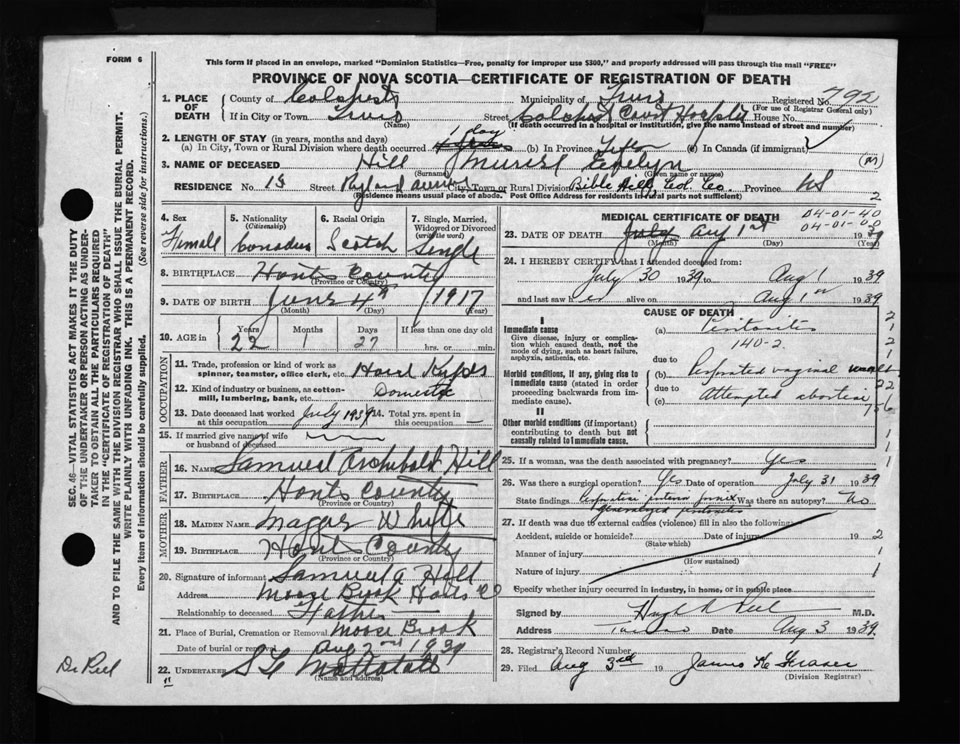 FORM 6
This form if placed in an envelope, marked "Dominion Statistics—Free, penalty for improper use $300," and properly addressed will pass through the mail "FREE"
PROVINCE OF NOVA SCOTIA—CERTIFICATE OF REGISTRATION OF DEATH
SEC. 46—VITAL STATISTICS ACT MAKES IT THE DUTY
OF THE UNDERTAKER OR PERSON ACTING AS UNDER-
TAKER TO OBTAIN ALL THE PARTICULARS REQUIRED
IN THE "CERTIFICATE OF REGISTRATION OF DEATH"
AND TO FILE THE SAME WITH THE DIVISION REGISTRAR WHO SHALL ISSUE THE BURIAL PERMIT.
WRITE PLAINLY WITH UNFADING INK. THIS IS A PERMANENT RECORD.
Every item of information should be carefully supplied. (See reverse side for instructions.)
1. PLACE OF DEATH County of Colchester Municipality of Truro Registered No. 792
(For use of Registrar General only)
If in City or Town Truro Street Colchester Hospital House No.
(Name) (If death occurred in a hospital or institution, give the name instead of street and number)
2. LENGTH OF STAY (in years, months and days)
(a) In City, Town or Rural Division where death occurred 1 day (b) In Province Life (c) in Canada (if immigrant)
3. NAME OF DECEASED Hill Muriel Evelyn (M)
(Surname) (Given name or names)
RESIDENCE No. 18 Street Ryland Avenue City, Town or Rural Division Bible Hill, Col. Co. Province NS
(Residence means usual place of abode. Post Office Address for residents in rural parts not sufficient) 2
4. Sex Female
5. Nationality (Citizenship) Canadian
6. Racial Origin Scotch
7. Single, Married, Widowed or Divorced (write the word) Single
8. BIRTHPLACE Hants County
(Province or Country)
9. DATE OF BIRTH June 4th 1917
(Month) (Day) (Year)
10. AGE in Years 22 Months 1 Days 27 If less than one day old hrs. or min.
OCCUPATION
11. Trade, profession or kind of work as spinner, teamster, office clerk, etc. House Keeper
12. Kind of industry or business, as cotton-mill, lumbering, bank, etc. Domestic
13. Date deceased last worked at this occupation July 1939 14. Total yrs. spent in this occupation —
15. If married give name of wife or husband of deceased
FATHER
16. NAME Samuel Archibald Hill
17. BIRTHPLACE Hants County
(Province or Country)
MOTHER
18. MAIDEN NAME Whyte
19. BIRTHPLACE Hants County
(Province or Country)
20. Signature of informant Samuel A Hill
Address Moose Brook Hants Co
Relationship to deceased Father
21. Place of Burial, Cremation or Removal Moose Brook
Date of burial or removal Aug 2nd 1939
22. UNDERTAKER S G Mattatall
(Name and address)
MEDICAL CERTIFICATE OF DEATH 04-01-40
04-01-
23. DATE OF DEATH July Aug 1st 1939
(Month) (Day) (Year)
24. I HEREBY CERTIFY that I attended deceased from:
July 30 1939 to Aug 1 1939
and last saw her alive on Aug 1st 1939
CAUSE OF DEATH
I
Immediate cause
Give disease, injury or complication which caused death, not the mode of dying, such as heart failure, asphyxia, asthenia, etc.
(a) Peritonitis
140-2.
due to
Morbid conditions, if any, giving rise to immediate cause (stated in order proceeding backwards from immediate cause).
(b) Perforated vaginal
due to
(c) Attempted abortion
II
Other morbid conditions (if important) contributing to death but not causally related to immediate cause.
25. If a woman, was the death associated with pregnancy? Yes
26. Was there a surgical operation? Yes Date of operation July 31 1939
State findings Perforation posterior fornix Was there an autopsy? No
generalized peritonitis
27. If death was due to external causes (violence) fill in also the following:
Accident, suicide or homicide? Date of injury 19
(State which)
Manner of injury
(How sustained)
Nature of injury
Specify whether injury occurred in industry, in home, or in public place
Signed by Hugh R Peel M.D.
Address Truro Date Aug 3 1939.
28. Registrar's Record Number
29. Filed Aug 3rd 19 James K Fraser
(Division Registrar)
Dr Peel